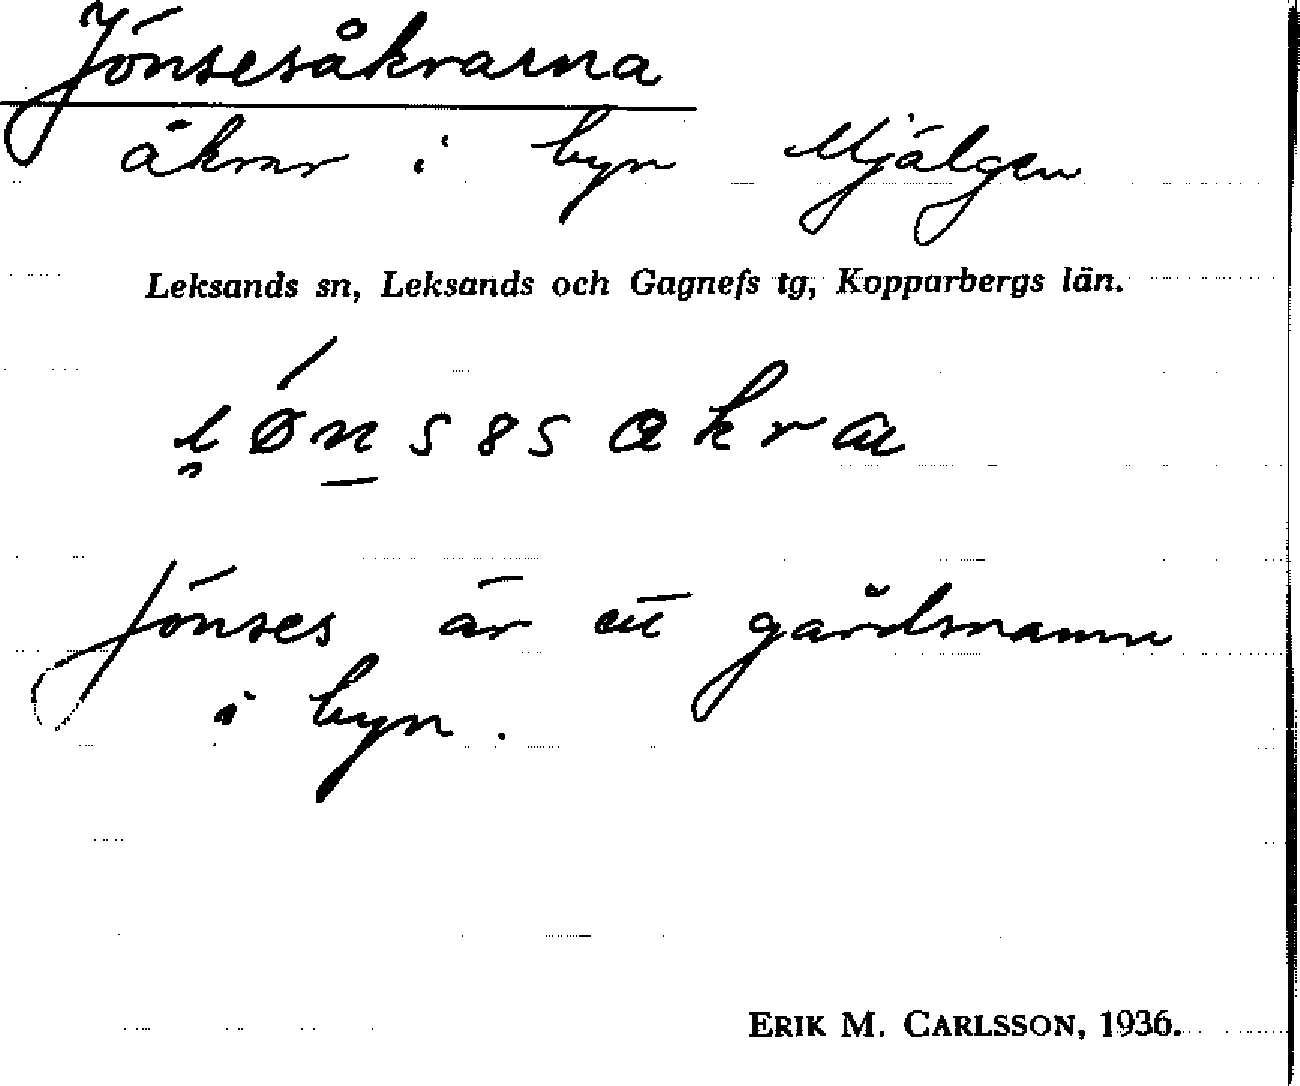 Jönsesåkrarna
åkrar i byn Mjälgen
Leksands sn, Leksands och Gagnefs tg, Kopparbergs län.
Jönses är ett gårdsnamn
i byn.
ERIK M. CARLSSON, 1936.